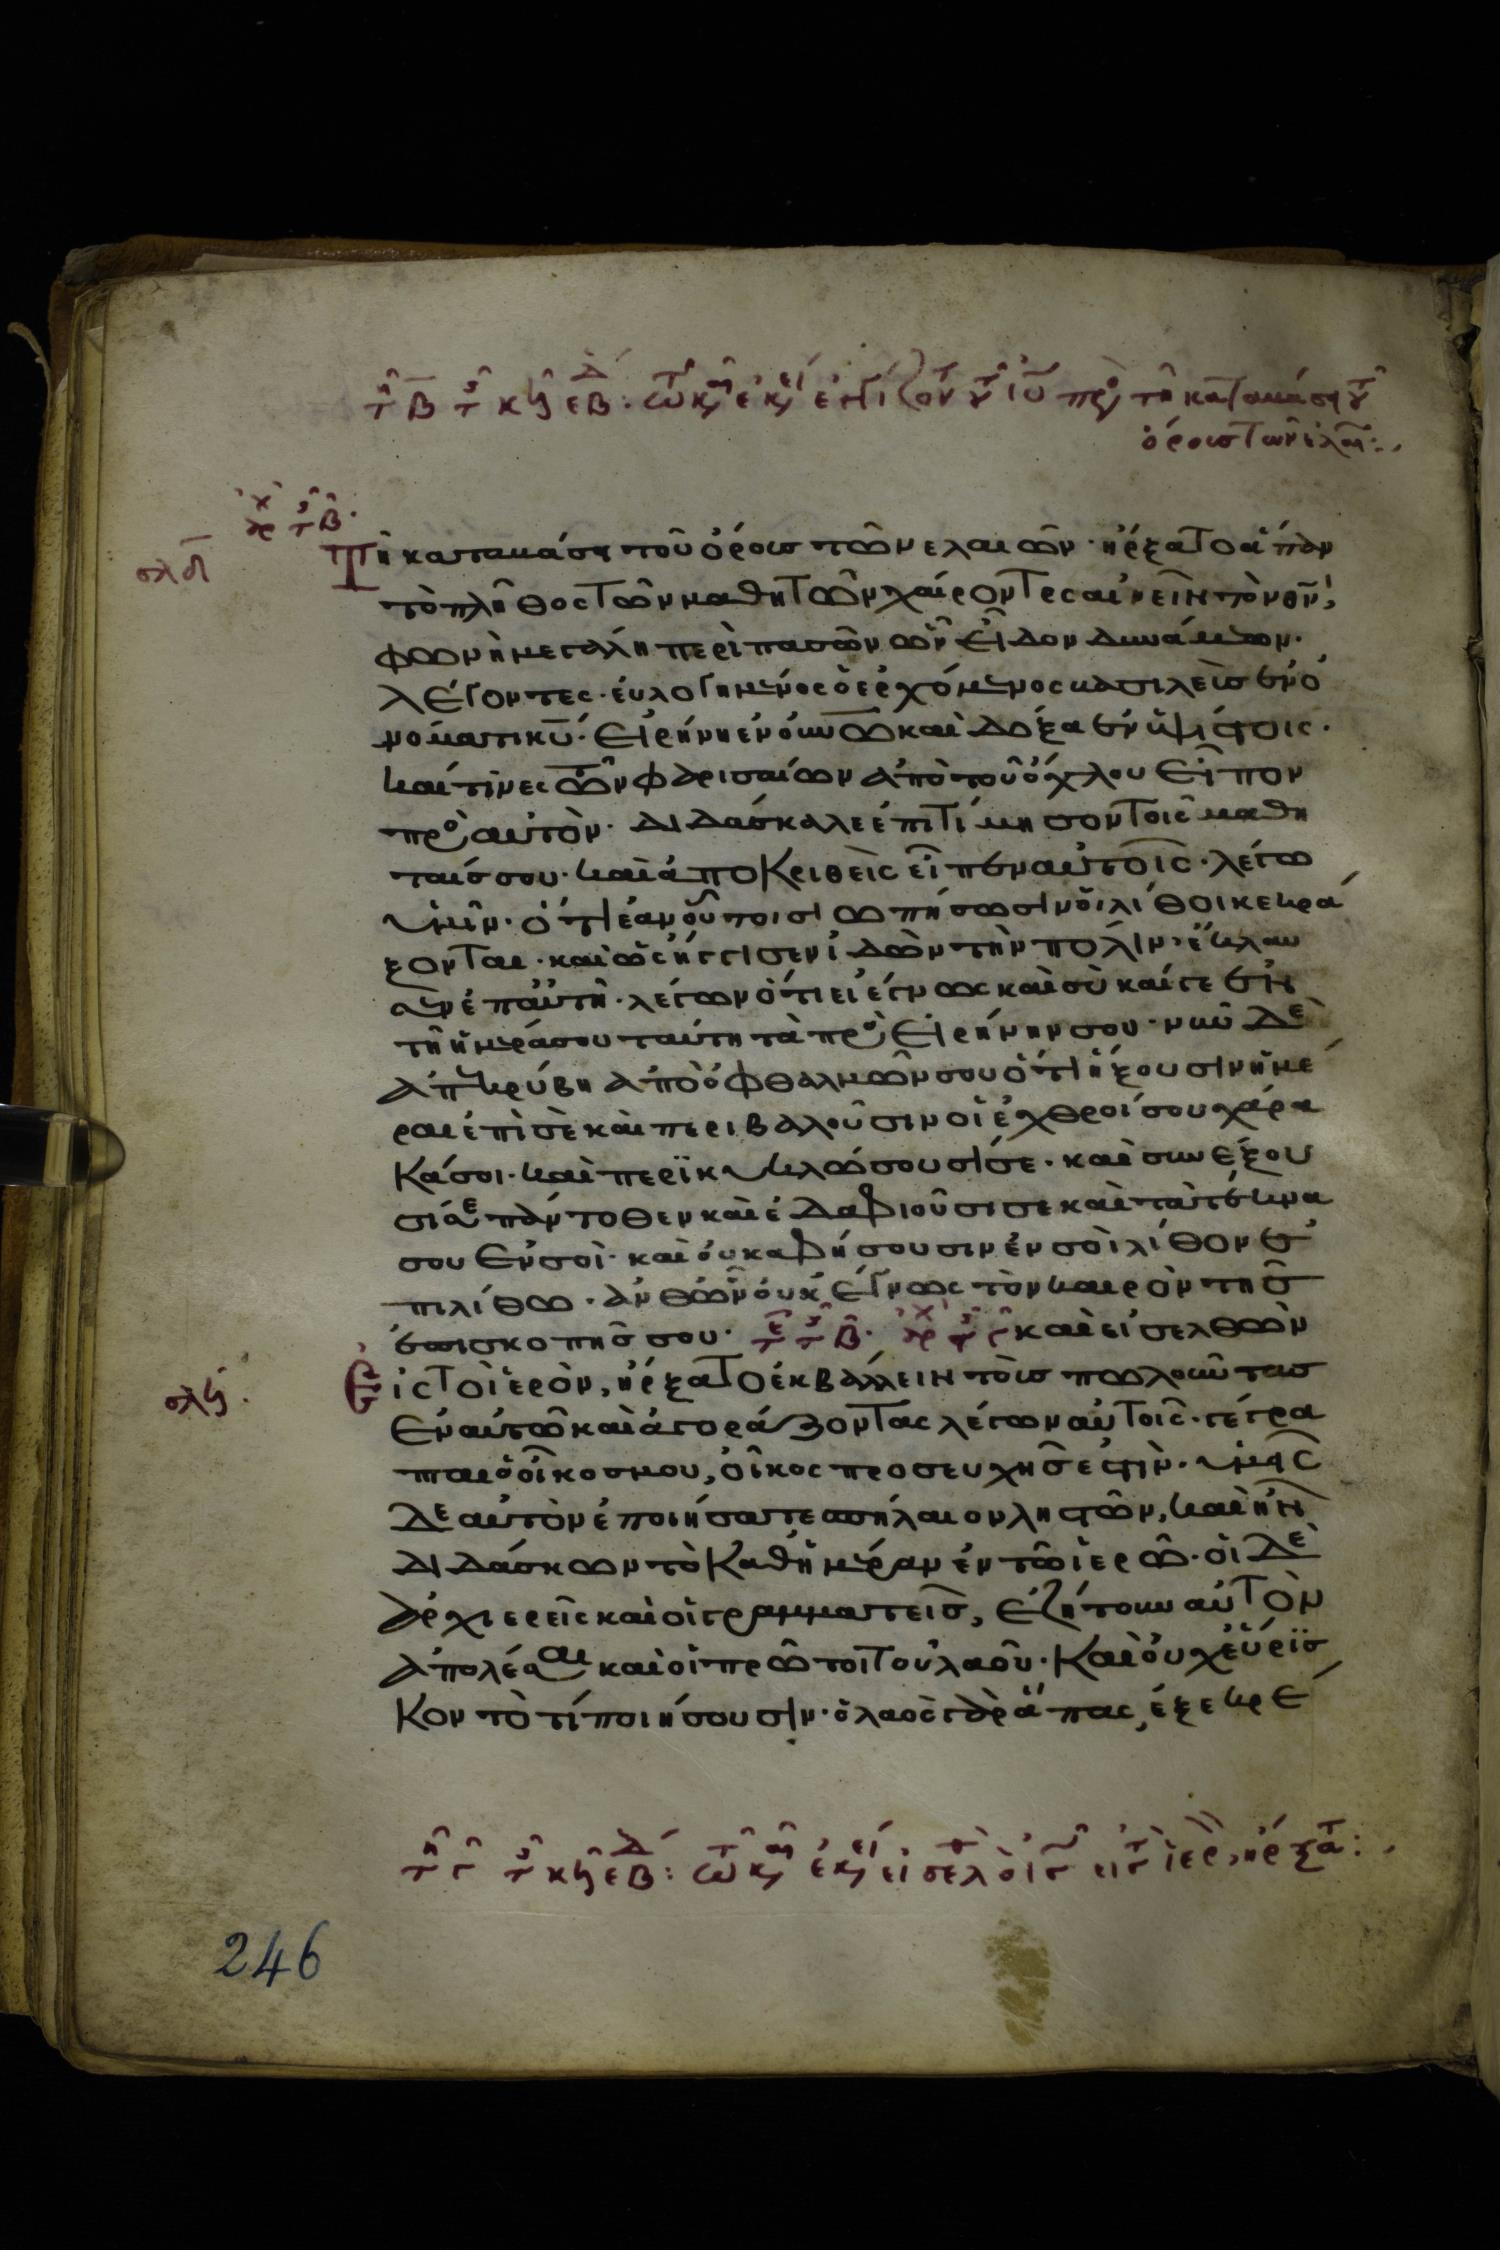 τῇ β τ κϛ εβδ. τῷ καιρῷ ἐκείνῳ ἐγγίζοντος τοῦ ιυ πρὸς τῇ καταβάσει τοῦ
ὄρους τῶν ελαι:
αρχ τ β.
σλδ
Τῆ καταβάσει τοῦ ὄρους τῶν ελαιῶν· ἤρξατο ἅπαν
τὸ πλῆθος τῶν μαθητῶν χαίροντες αἰνεῖν τὸν θν,
φωνὴ μεγάλη περὶ πασῶν ὧν εἶδον δυνάμεων·
λέγοντες· ἐυλογημένος ὁ ερχόμενος βασιλεὺσ ἐν ὀ
νόματι κυ· Εἰρήνη ἐν ὀυνω καὶ δόξα ἐν ὑψίστοις·
καί τινες τῶν φαρισαίων ἀπὸ τοῦ ὄχλου εἶπον
πρὸς αὐτὸν· διδάσκαλε ἐπιτίμησον τοῖς μαθη
ταίσ σου· καὶ ἀποκριθεὶς εἶπεν αὐτοῖς· λέγω
ὑμῖν· ὅτι ἐὰν οὗτοι σιωπήσωσιν ὁι λίθοι κεκρά
ξονται· καὶ ὡς ἤγγισεν ἰδὼν τὴν πόλιν· ἔκλαυ
σεν ἐπ αὐτῆ· λέγων ὅτι εἰ ἔγνως καὶ σὺ καί γε ἐν
τῆ ἡμέρα σου ταύτη τὰ πρὸς Εἰρήνην σου· νῦν δὲ
ἀπεκρύβη ἀπὸ ὀφθαλμῶν σου ὅτι ἥξουσιν ἡμέ
ραι ἐπὶ σὲ καὶ περιβαλοῦσιν οἱ ἐχθροί σου χάρα
κά σοι· καὶ περϊκυκλώσουσί σε· καὶ συνέξου
σί σε πάντοθεν καὶ ἐδαφιοῦσι σε καὶ τὰ τέκνα
σου Εν σοὶ· καὶ ὀυκ αφήσουσιν ἐν σοὶ λίθον ἐ
πι λίθω· ἀνθῶν ὀυκ Εγνως τὸν καιρὸν τῆς
ἐπισκοπῆς σου· τε τ β· αρχ τ γ καὶ εἰσελθὼν
σλϛ.
Εἰς τὸ ἱερὸν, ἤρξατο ἐκβάλλειν τοὺσ πωλοῦντασ
Εν αὐτῶ καὶ ἀγοράζοντας λέγων αὐτοῖς· γέγρα
πται ὁ οἶκοσ μου, οἶκος προσευχῆς ἐστὶν· ὑμεῖς
δε αὐτὸν ἐποιήσατε σπήλαιον ληστῶν, καὶ ἦν
διδάσκων τὸ καθ ἡμέραν ἐν τῶ ἱερῶ· οἱ δὲ
ἀρχιερεῖς καὶ οἱ γραμματεῖς, ἐζήτουν αὐτὸν
ἀπολέσαι καὶ οἱ πρῶτοι τοῦ λαοῦ· Καὶ οὐχ εὕρϊσ
κον τὸ τί ποιήσουσιν· ὁ λαὸς γὰρ ἅπας, ἐξεκρέ
τῇ γ τ κϛ εβδ: τῷ καιρῷ ἐκείνῳ εἰσελθ ὁ ις εἰς τὸ ἱερ, ηρξατ:
246